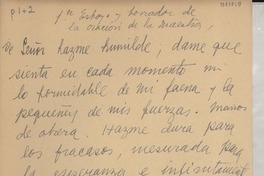 p 1+2
y honrador de
la oración de la maestra,
Señor hazme humilde; dame que
sienta en cada momento lo
formidable de mi faena y la
pequeñez de mis fuerzas. Manos
de obrera. Hazme dura para
los fracasos, mesurada para
la esperanza e